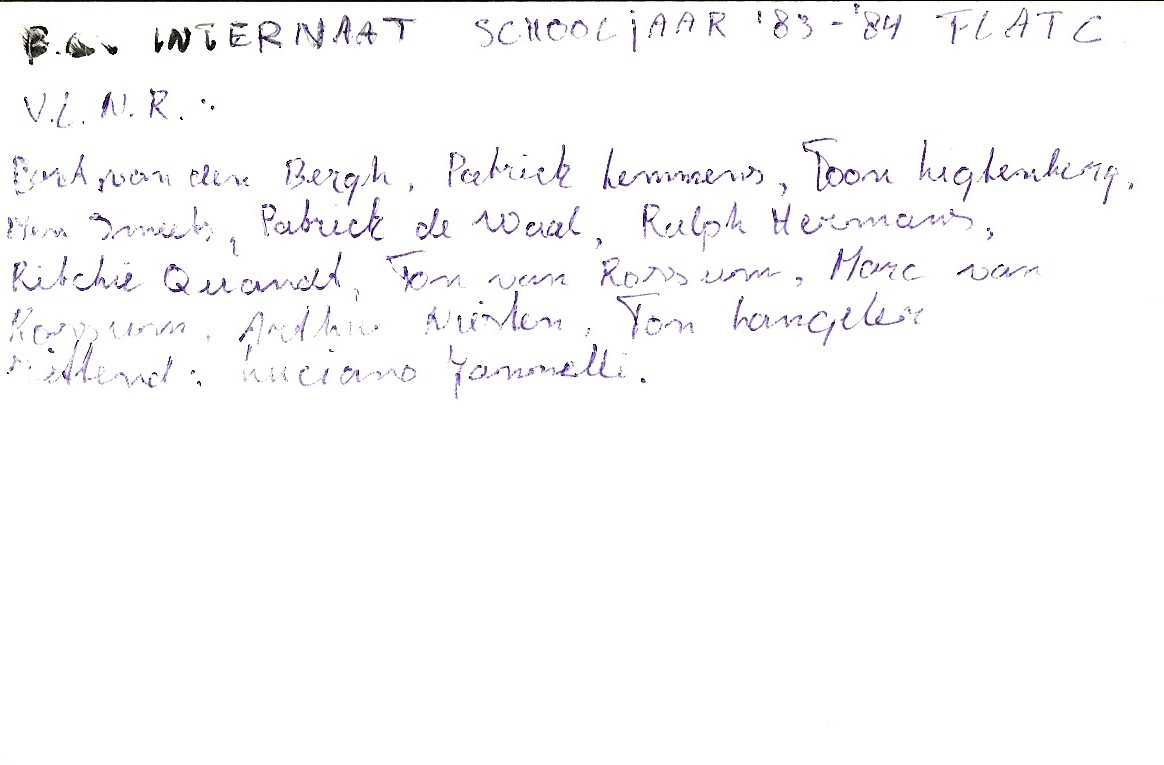 INTERNAAT SCHOOLJAAR '83-'84 FLAT C
V.L.N.R. :
Bart van den Bergh, Patrick Lemmens, Toon Ligtenberg,
Smeets, Patrick de Waal, Ralph Hermans,
Ritchie Quandt, Ton van Rossum, Marc van
Rossum, Arthur Niesten, Ton Langeler
Zittend : Luciano Iannelli.